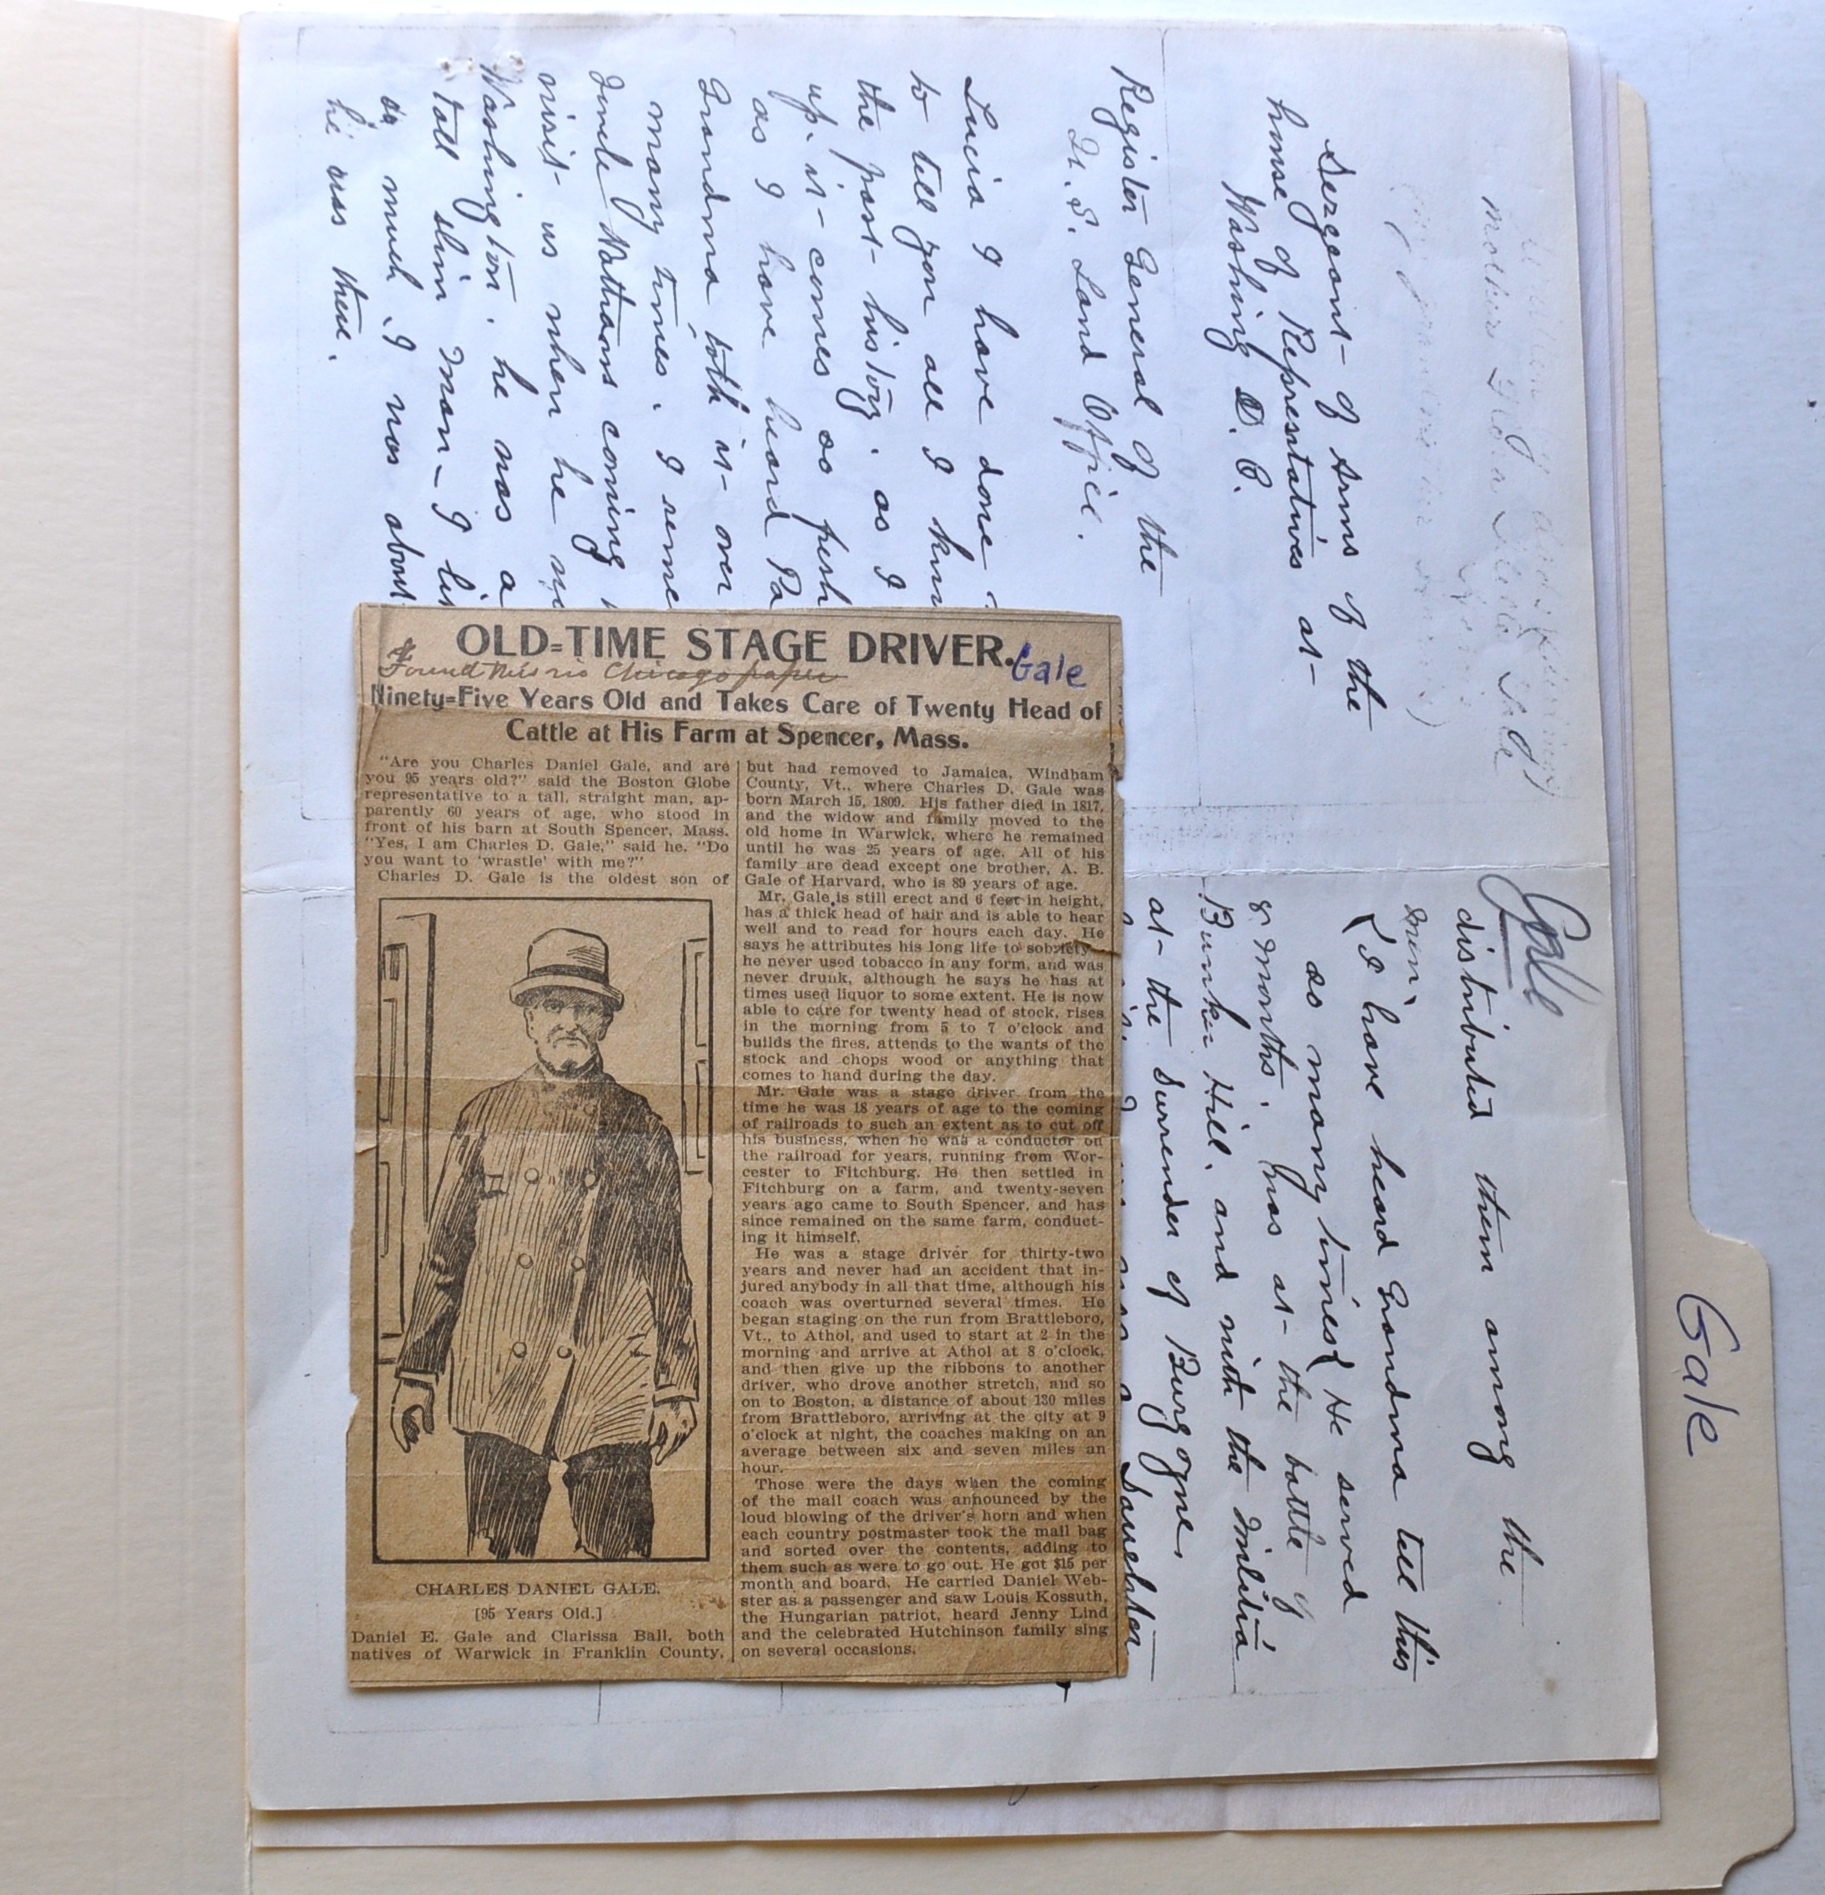 OLD=TIME STAGE DRIVER.
Gale
Found this in Chicago paper
Ninety=Five Years Old and Takes Care of Twenty Head of
Cattle at His Farm at Spencer, Mass.
"Are you Charles Daniel Gale, and are
you 95 years old?" said the Boston Globe
representative to a tall, straight man, ap-
parently 60 years of age, who stood in
front of his barn at South Spencer, Mass.
"Yes, I am Charles D. Gale," said he. "Do
you want to 'wrastle' with me?"
Charles D. Gale is the oldest son of
CHARLES DANIEL GALE.
[95 Years Old.]
Daniel E. Gale and Clarissa Ball, both
natives of Warwick in Franklin County,
but had removed to Jamaica, Windham
County, Vt., where Charles D. Gale was
born March 15, 1809. His father died in 1817,
and the widow and family moved to the
old home in Warwick, where he remained
until he was 25 years of age. All of his
family are dead except one brother, A. B.
Gale of Harvard, who is 89 years of age.
Mr. Gale is still erect and 6 feet in height,
has a thick head of hair and is able to hear
well and to read for hours each day. He
says he attributes his long life to sobriety—
he never used tobacco in any form, and was
never drunk, although he says he has at
times used liquor to some extent. He is now
able to care for twenty head of stock, rises
in the morning from 5 to 7 o'clock and
builds the fires, attends to the wants of the
stock and chops wood or anything that
comes to hand during the day.
Mr. Gale was a stage driver from the
time he was 18 years of age to the coming
of railroads to such an extent as to cut off
his business, when he was a conductor on
the railroad for years, running from Wor-
cester to Fitchburg. He then settled in
Fitchburg on a farm, and twenty-seven
years ago came to South Spencer, and has
since remained on the same farm, conduct-
ing it himself.
He was a stage driver for thirty-two
years and never had an accident that in-
jured anybody in all that time, although his
coach was overturned several times. He
began staging on the run from Brattleboro,
Vt., to Athol, and used to start at 2 in the
morning and arrive at Athol at 8 o'clock,
and then give up the ribbons to another
driver, who drove another stretch, and so
on to Boston, a distance of about 130 miles
from Brattleboro, arriving at the city at 9
o'clock at night, the coaches making on an
average between six and seven miles an
hour.
Those were the days when the coming
of the mail coach was announced by the
loud blowing of the driver's horn and when
each country postmaster took the mail bag
and sorted over the contents, adding to
them such as were to go out. He got $15 per
month and board. He carried Daniel Web-
ster as a passenger and saw Louis Kossuth,
the Hungarian patriot, heard Jenny Lind
and the celebrated Hutchinson family sing
on several occasions.
Sergeant- of Arms of the
house of Represtatives at-
Washing D. C.
Register General of the
U. S. Land Office.
Lucia I have done
to tell you all I
the past- history. as I
up. it- comes as fresh
as I have heard Pa
Grandma both it- over
many times. I
Uncle Nathans coming
visit- us when he
Washington. he was a
tall slim man- I
so much. I was about
he was there.
Gale
distributed them among the
men.
(I have heard Grandma tell this
so many times) He served
8 months. was at- the battle of
Bunker Hill. and with the militia
at- the Surrender of Burgoyne.
Gale